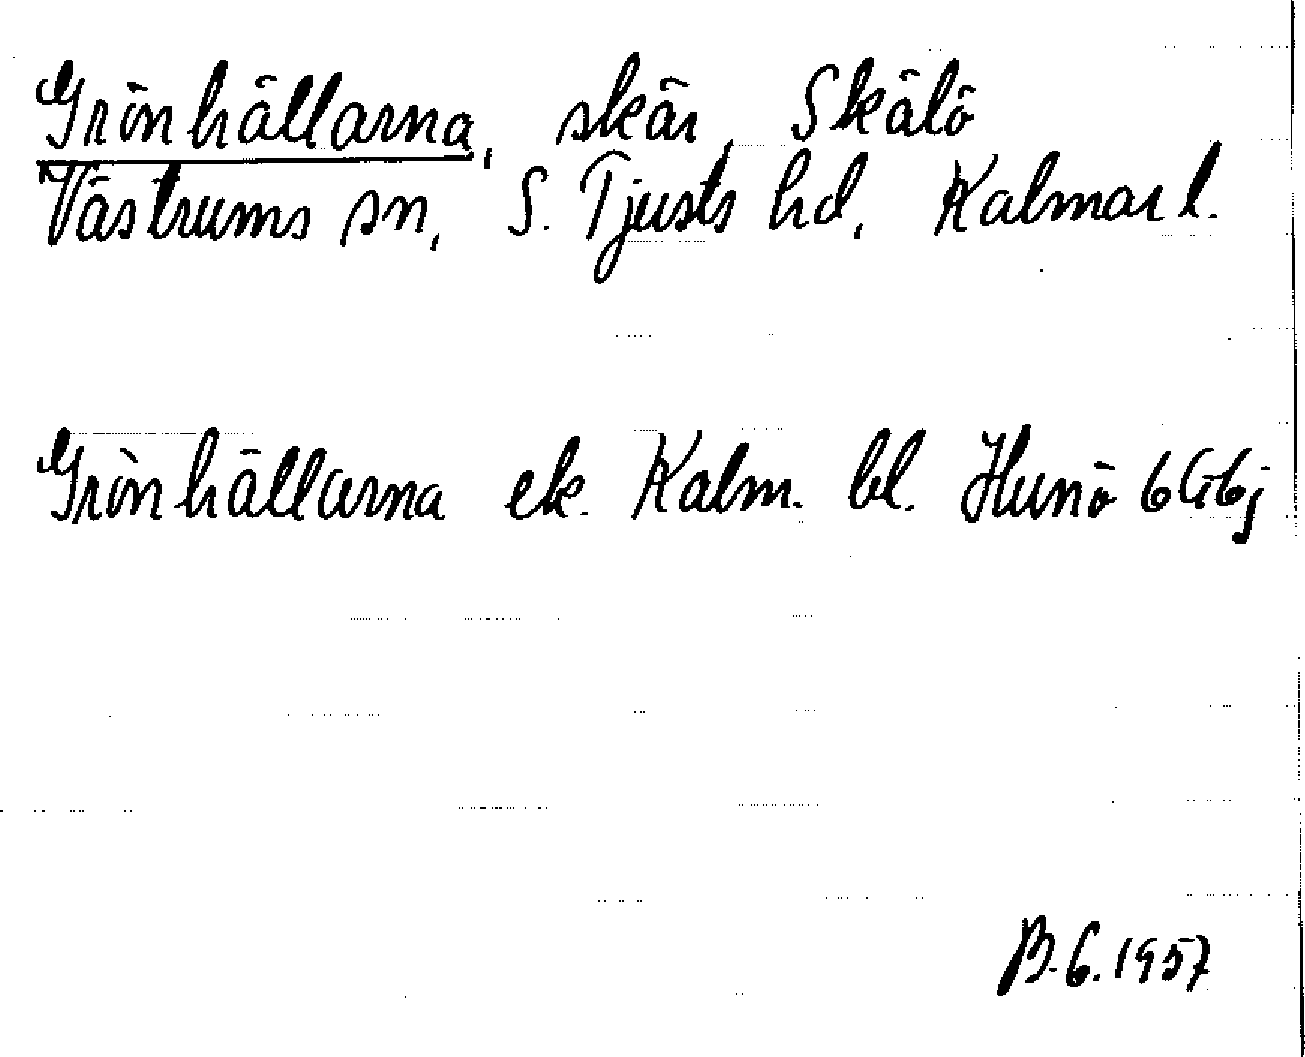 Grönhällarna, skär, Skälö
Västrums sn, S. Tjusts hd, Kalmar l.
Grönhällarna ek. Kalm. bl. Hunö 6G6j
B.G. 1957